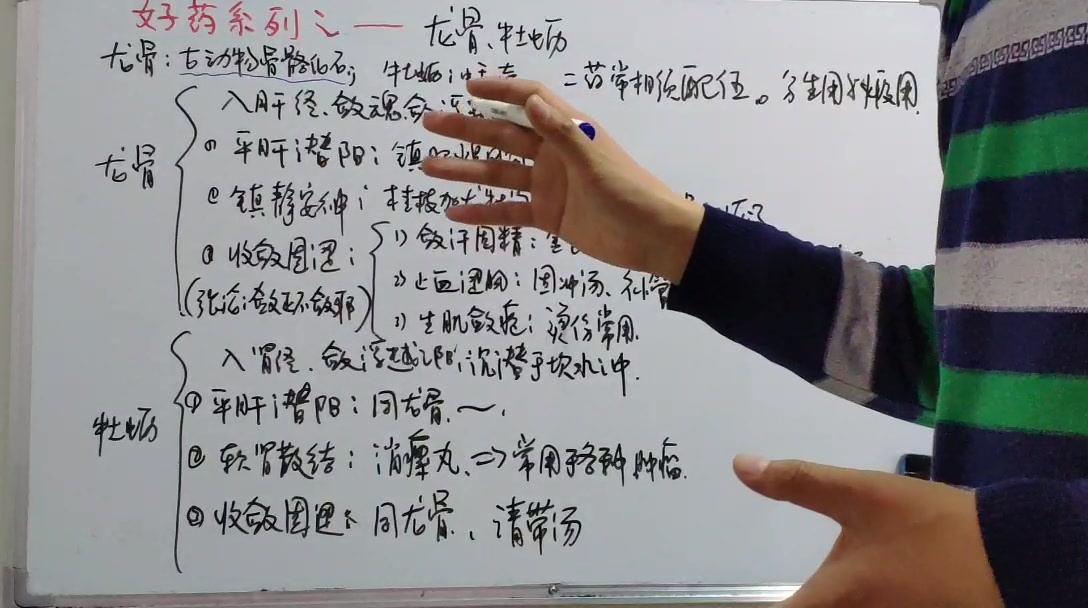 好药系列之一 龙骨、牡蛎
龙骨：古动物骨骼化石； 牡蛎： 二药常相须配伍。分生用 煅用
入肝经、敛魂
龙骨
① 平肝潜阳：镇
② 镇静安神：桂枝加龙牡
③ 收敛固涩：
1) 敛汗固精：金
2) 止血涩肠：固冲汤、
3) 生肌敛疮：烫伤常用.
(张论：敛正不敛邪)
入肾经、敛浮越之阳，沉潜于坎水之中.
牡蛎
① 平肝潜阳：同龙骨
② 软坚散结：消瘰丸、=>常用于各种肿瘤.
③ 收敛固涩： 同龙骨、清带汤